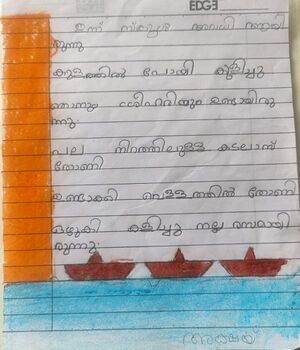 EDGE
ഇന്ന് സ്കൂൾ അവധി ആയി
രുന്നു
കുളത്തിൽ പോയി കുളിച്ചു
ഞാനും ശ്രീഹരിയും ഉണ്ടായിരു
ന്നു.
പല നിറത്തിലുള്ള കടലാസ്
തോണി
ഉണ്ടാക്കി വെള്ളത്തിൽ തോണി
ഒഴുകി കളിച്ചു നല്ല രസമായി
രുന്നു.
അക്ഷയ്